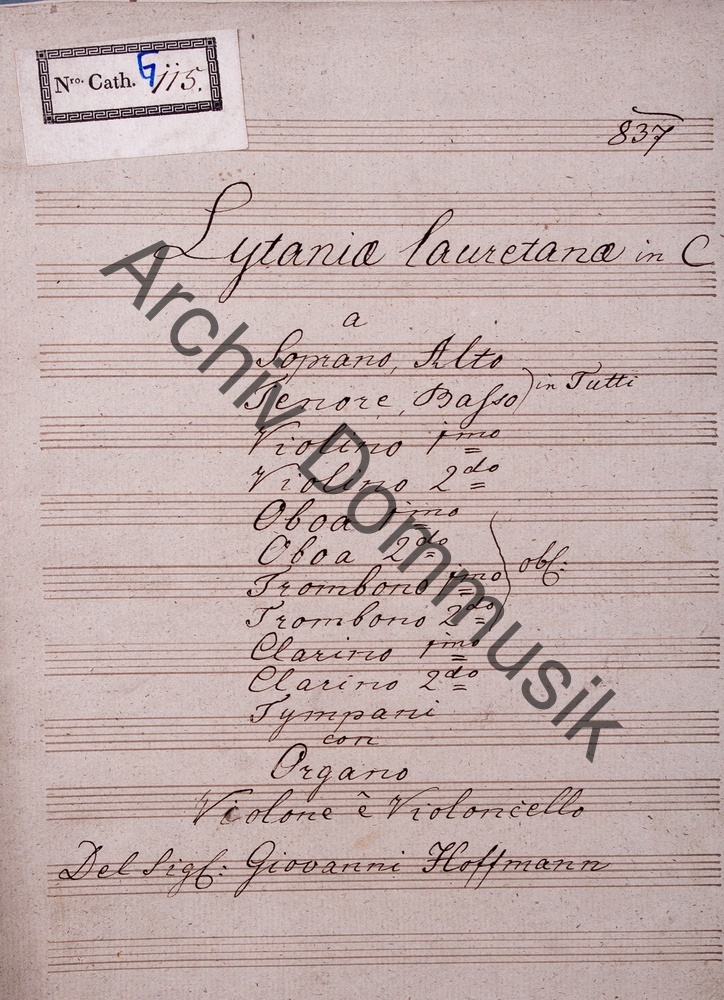 Nro. Cath. G 115.
837
Lytaniæ lauretanæ in C
a
Soprano, Alto
Tenore, Basso) in Tutti
Violino 1mo
Violino 2do
Oboa 1mo
Oboa 2do
Trombono 1mo
Trombono 2do
obl:
Clarino 1mo
Clarino 2do
Tympani
con
Organo
Violone ê Violoncello
Del Sigl: Giovanni Hoffmann
Archiv Dommusik